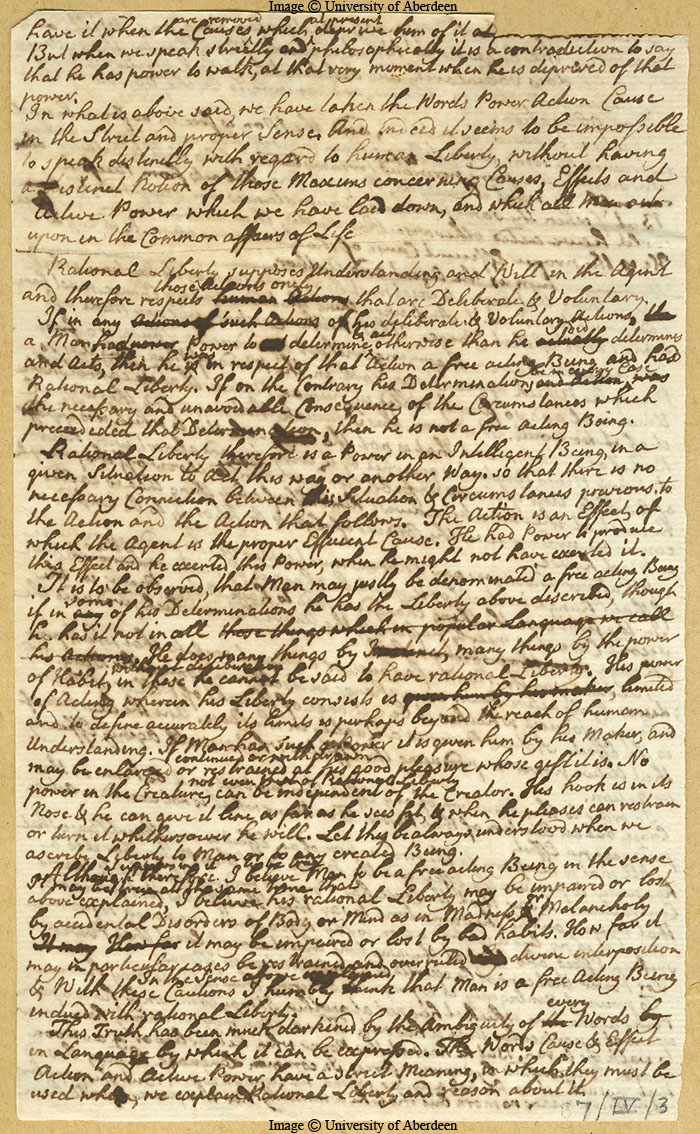 Image © University of Aberdeen
are removed at present
have it when the Causes which deprive him of it at
But when we speak strictly and philosophically it is a contradiction to say
that he has power to walk, at that very moment when he is deprived of that
power.
In what is above said, we have taken the Words Power Action Cause
in the Strict and proper Sense. And indeed it seems to be impossible
to speak distinctly with regard to human Liberty, without having
a distinct Notion of those Maxims concerning Causes, Effects and
Active Power which we have laid down, and which all Men
upon in the Common affairs of Life
Rational Liberty supposes Understanding and Will in the Agent
those Actions only
and therefore respects human Actions that are Deliberate & Voluntary.
If in any Actions of such Actions of his deliberate & Voluntary Actions, the
a Man had Power to determine otherwise than he actually did determine
and Act, then he was in respect of that Action a free acting Being and had
in every Case
Rational Liberty. If on the Contrary his Determination and Action was
the necessary and unavoidable Consequence of the Circumstances which
preceeded that Determination, then he is not a free acting Being.
Rational Liberty therefore is a Power in an Intelligent Being, in a
given Situation to Act this way or another Way. so that there is no
necessary Connection between his Situation & Circumstances previous to
the Action and the Action that follows. The Action is an Effect of
which the Agent is the proper Efficient Cause. He had Power to produce
this Effect and he exerted this Power, when he might not have exerted it.
It is to be observed, that Man may justly be denominated a free acting Being
some
if in any of his Determinations he has the Liberty above described, though
he has it not in all those things which in popular Language we call
his Actions. He does many things by Instinct, many things by the power
of Habit, in these he cannot be said to have rational Liberty. His power
of Acting wherein his Liberty consists is given him by his maker, limited
and to define accurately its limits is perhaps beyond the reach of human
Understanding. If Man has such a Power it is given him by his Maker, and
continued or withdrawn
may be enlarged or restrained at his good pleasure whose gift it is. No
not even that of Rational Liberty
power in the Creature, can be independent of the Creator. His hook is in its
Nose & he can give it line as far as he sees fit, & when he pleases can restrain
or turn it whithersoever he will. Let this be always understood when we
ascribe Liberty to Man or to any created Being.
Although therefore I believe Man to be a free acting Being in the sense
at the same time that
above explained, I believe his rational Liberty may be impaired or lost
by accidental Disorders of Body or Mind as in Madness or Melancholy
It may How far it may be impaired or lost by bad habits. How far it
may in particular cases be restrained and overruled divine interposition
in the Sense above
& With these Cautions I humbly think that Man is a free Acting Being
indued with rational Liberty.
every
This Truth has been much darkened by the Ambiguity of the Words by
in Language by which it can be expressed. The Words Cause & Effect
Action and Active Power have a strict Meaning, in which they must be
used when we explain Rational Liberty and reason about it.
7/IV/3
Image © University of Aberdeen